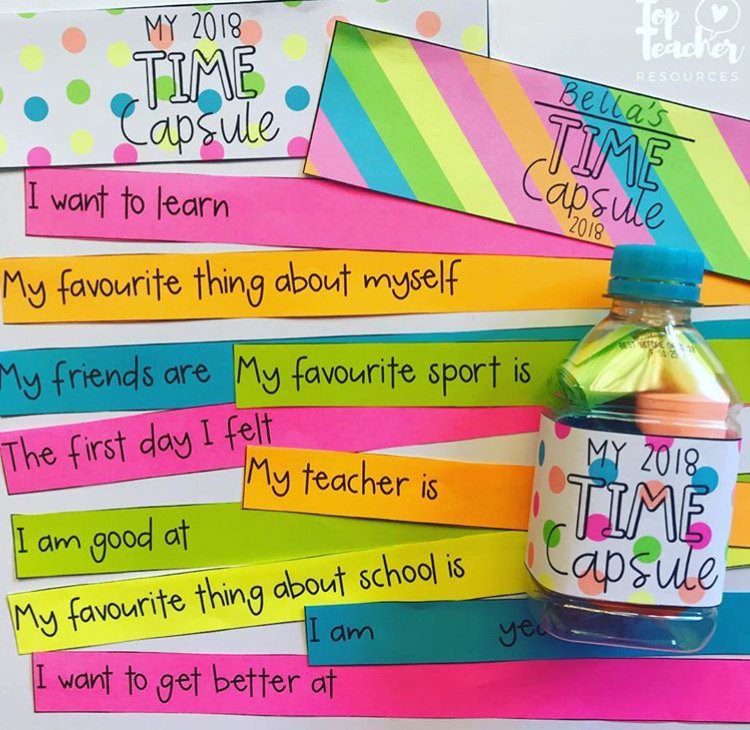 MY 2018
TIME
Capsule
Top
Teacher
RESOURCES
Bella's
TIME
Capsule
2018
I want to learn
My favourite thing about myself
My friends are
My favourite sport is
The first day I felt
My teacher is
I am good at
My favourite thing about school is
I am
I want to get better at
MY 2018
TIME
Capsule